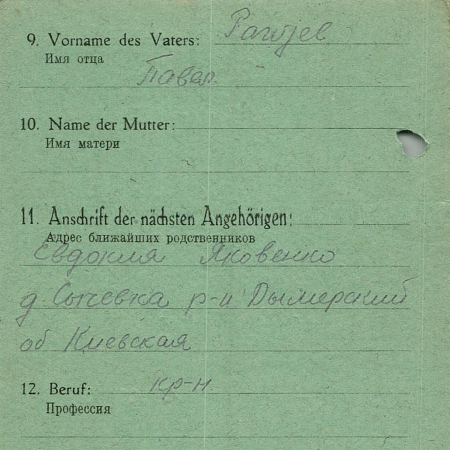 9. Vorname des Vaters:
Имя отца
Павел
10. Name der Mutter:
Имя матери
11. Anschrift der nächsten Angehörigen:
Адрес ближайших родственников
Евдокия Яковенко
д Сычевка р-н Дымерский
об Киевская
12. Beruf: кр-н.
Профессия